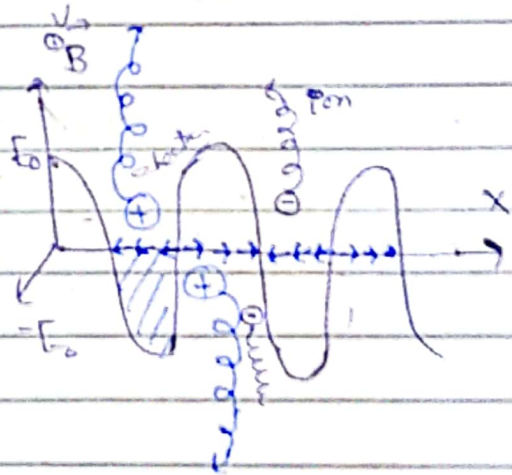 V
B
E₀
electron
ion
+
-
X
+
-
-E₀